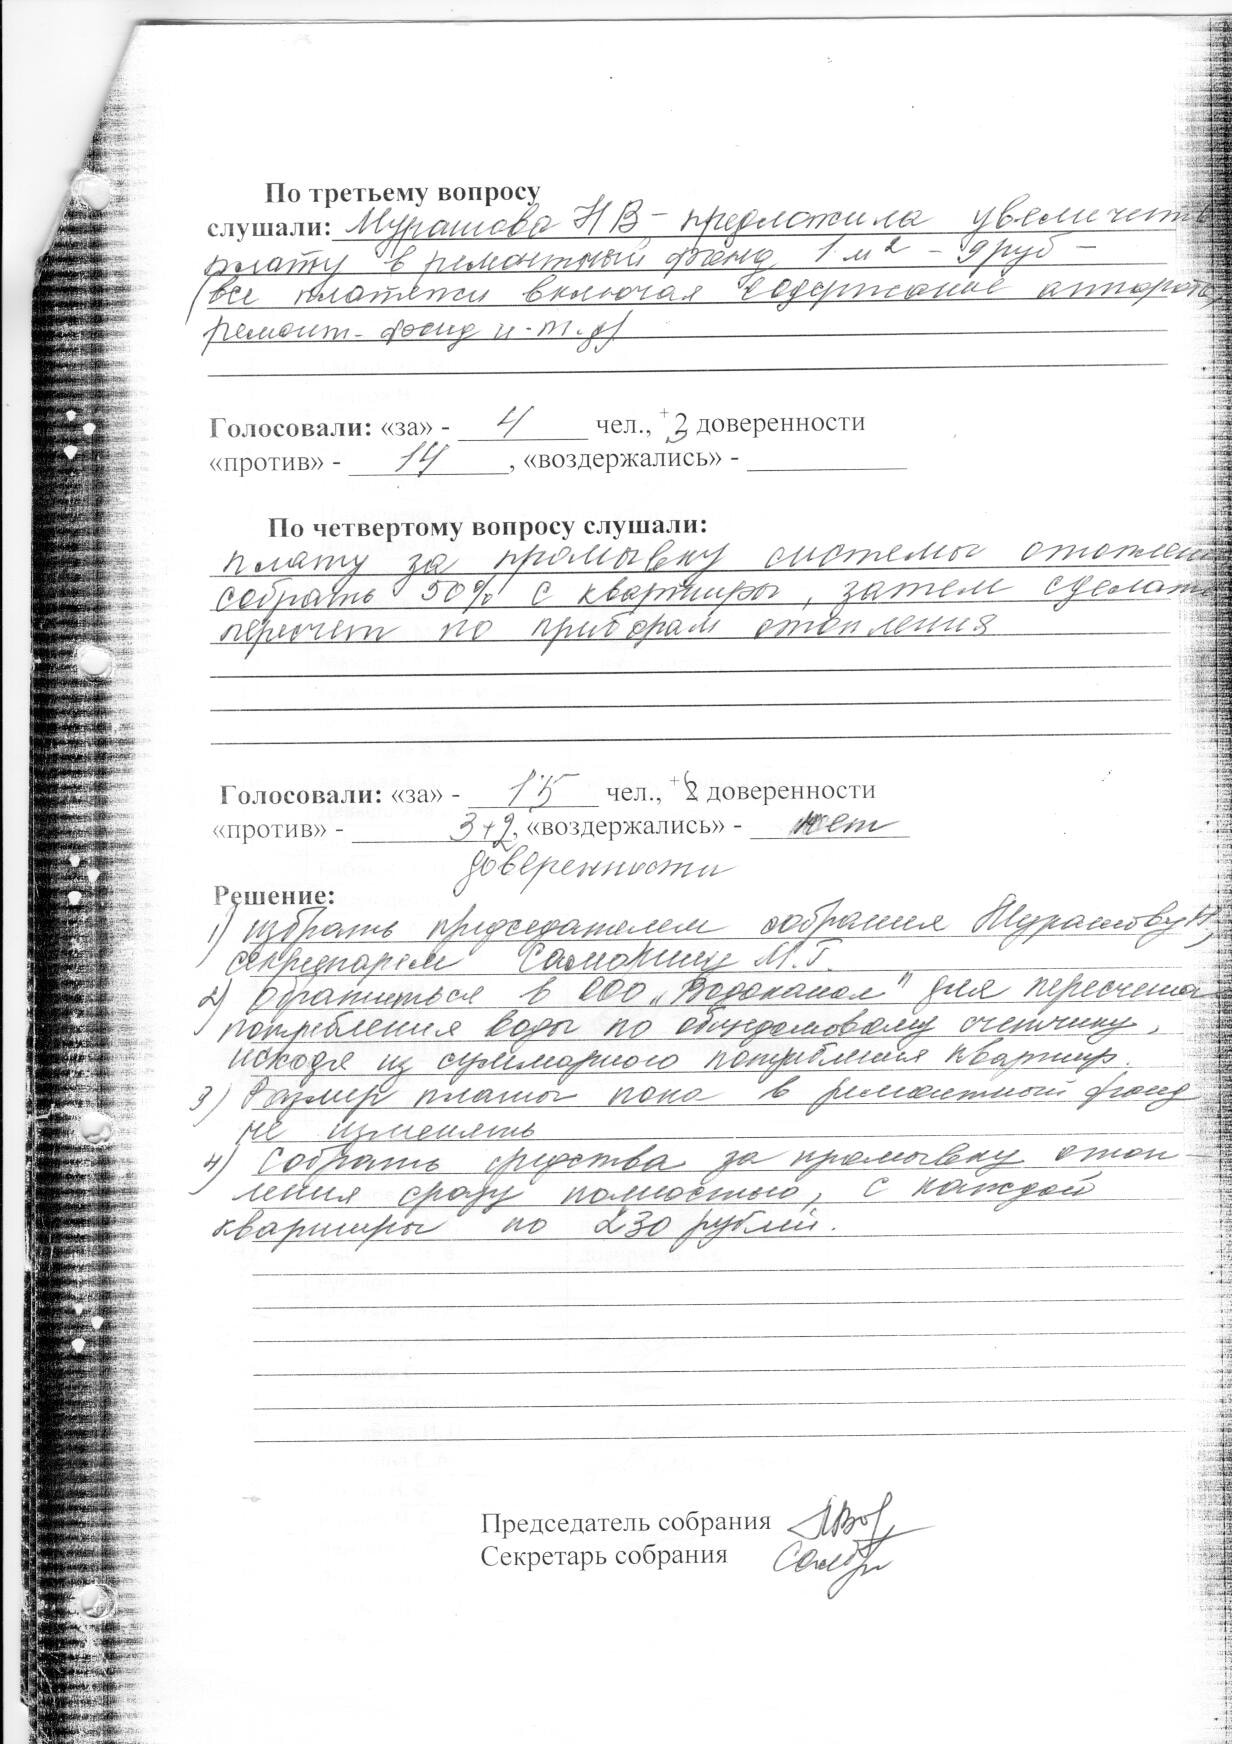 По третьему вопросу
слушали: Мурашова НВ - предложила увеличить
плату в ремонтный фонд 1 м2 - 9 руб -
(все платежи включая содержание аппарата,
ремонт. фонд и т.д)
Голосовали: «за» - 4 чел., + доверенности
«против» - 14, «воздержались» -
По четвертому вопросу слушали:
плату за промывку системы отоплен
собрать 50% с квартиры, затем сделать
пересчет по приборам отопления
Голосовали: «за» - 15 чел., + доверенности
«против» - 3+2, «воздержались» - нет
доверенности
Решение:
1) избрать председателем собрания Мурашову Н,
секретарем М.Г.
2) Обратиться в ООО „Водоканал" для пересчета
потребления воды по общедомовому счетчику,
исходя из суммарного потребления квартир.
3) Размер платы пока в ремонтный фонд
не изменять
4) Собрать средства за промывку отоп-
ления сразу полностью, с каждой
квартиры по 230 рублей.
Председатель собрания
Секретарь собрания